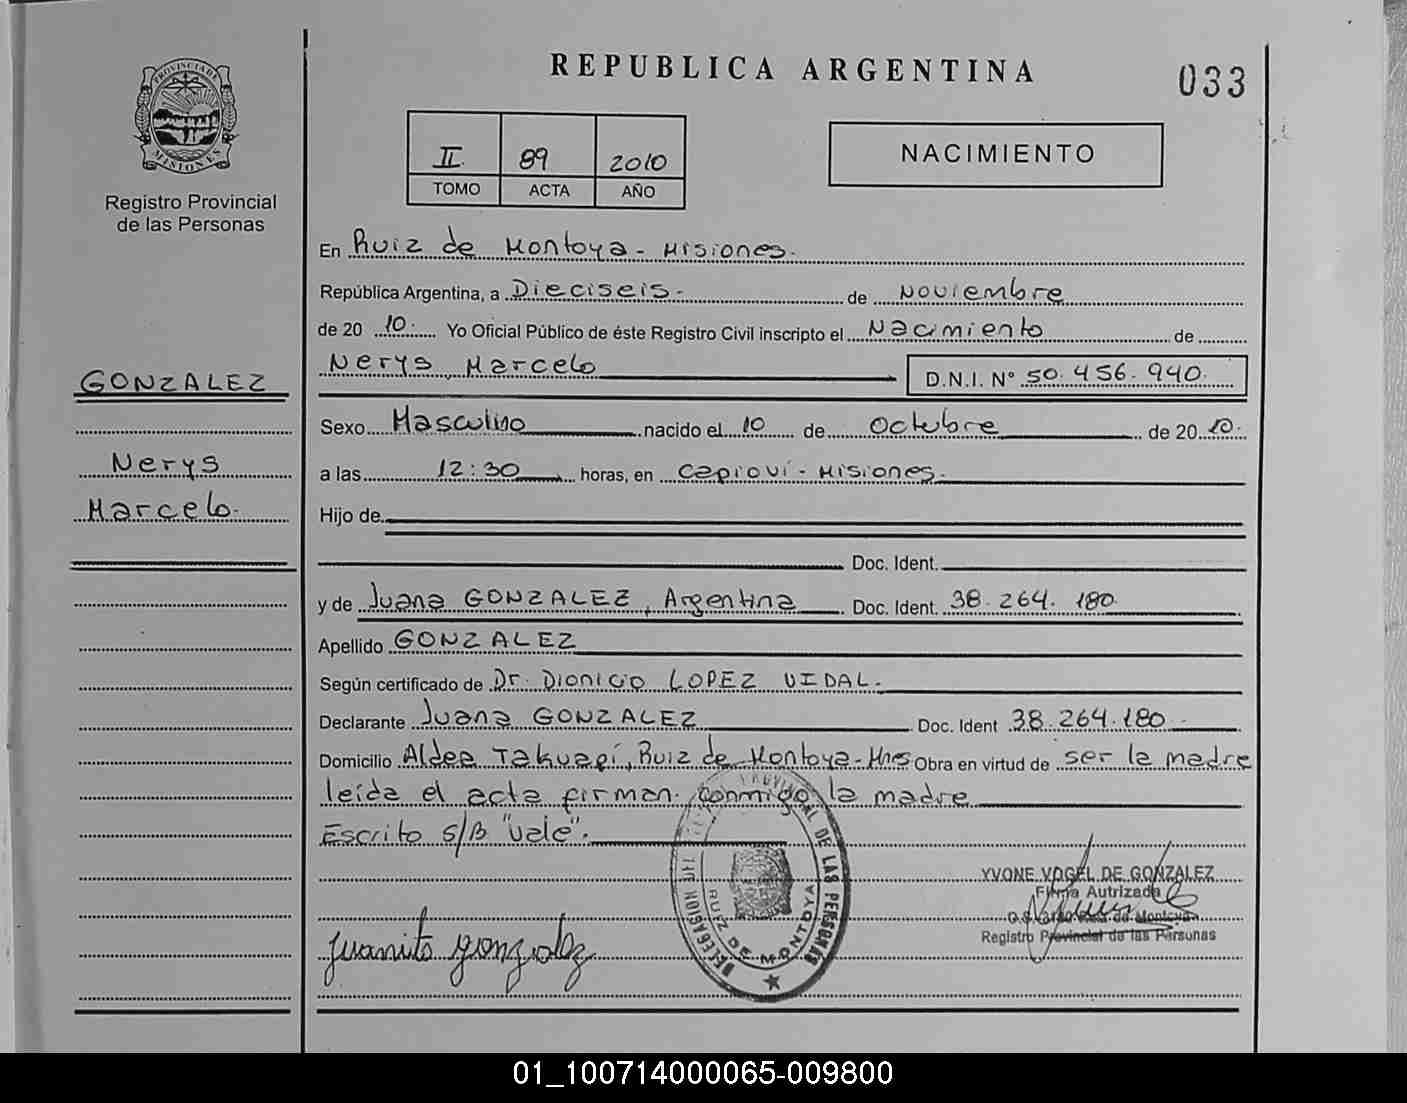 PROVINCIA DE
MISIONES
Registro Provincial
de las Personas
GONZALEZ
Nerys
Marcelo.
REPUBLICA ARGENTINA
033
II. 89 2010
TOMO ACTA AÑO
NACIMIENTO
En Ruiz de Montoya - Misiones.
República Argentina, a Dieciseis.- de Noviembre
de 20 10. Yo Oficial Público de éste Registro Civil inscripto el Nacimiento de
Nerys, Marcelo D.N.I. N° 50.456.940.
Sexo Masculino nacido el 10 de Octubre de 20 10.
a las 12:30 horas, en Capioví - Misiones.
Hijo de
Doc. Ident.
y de Juana GONZALEZ, Argentina Doc. Ident. 38.264.180
Apellido GONZALEZ
Según certificado de Dr. Dionicio LOPEZ VIDAL.
Declarante Juana GONZALEZ Doc. Ident 38.264.180.-
Domicilio Aldea Takuapí, Ruiz de Montoya - Mnes Obra en virtud de ser la madre
leída el acta firman conmigo la madre
Escrito S/B "vale".
DELEGACION PROVINCIAL DE LAS PERSONAS
RUIZ DE MONTOYA
YVONE VOGEL DE GONZALEZ
Firma Autrizada
de Montoya
Registro Provincial de las Personas
juanita gonzalez
01_100714000065-009800